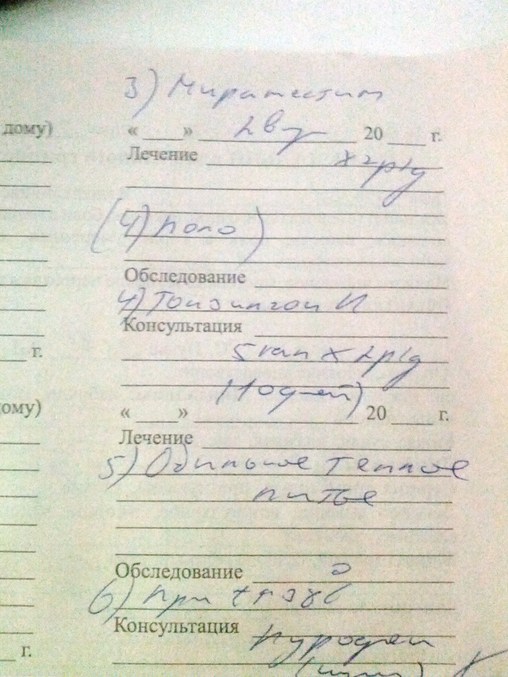 3) Мирамистин
дому) « » 2 в 20 г.
Лечение х 2 р/д
(4)
Обследование
4) Тонзилгон Н
Консультация
5 кап х 2 р/д
г. (10 дней)
ому) « » 20 г.
Лечение
5) Обильное теплое
питье
Обследование
6) При t > 38
Консультация
Нурофен
г.